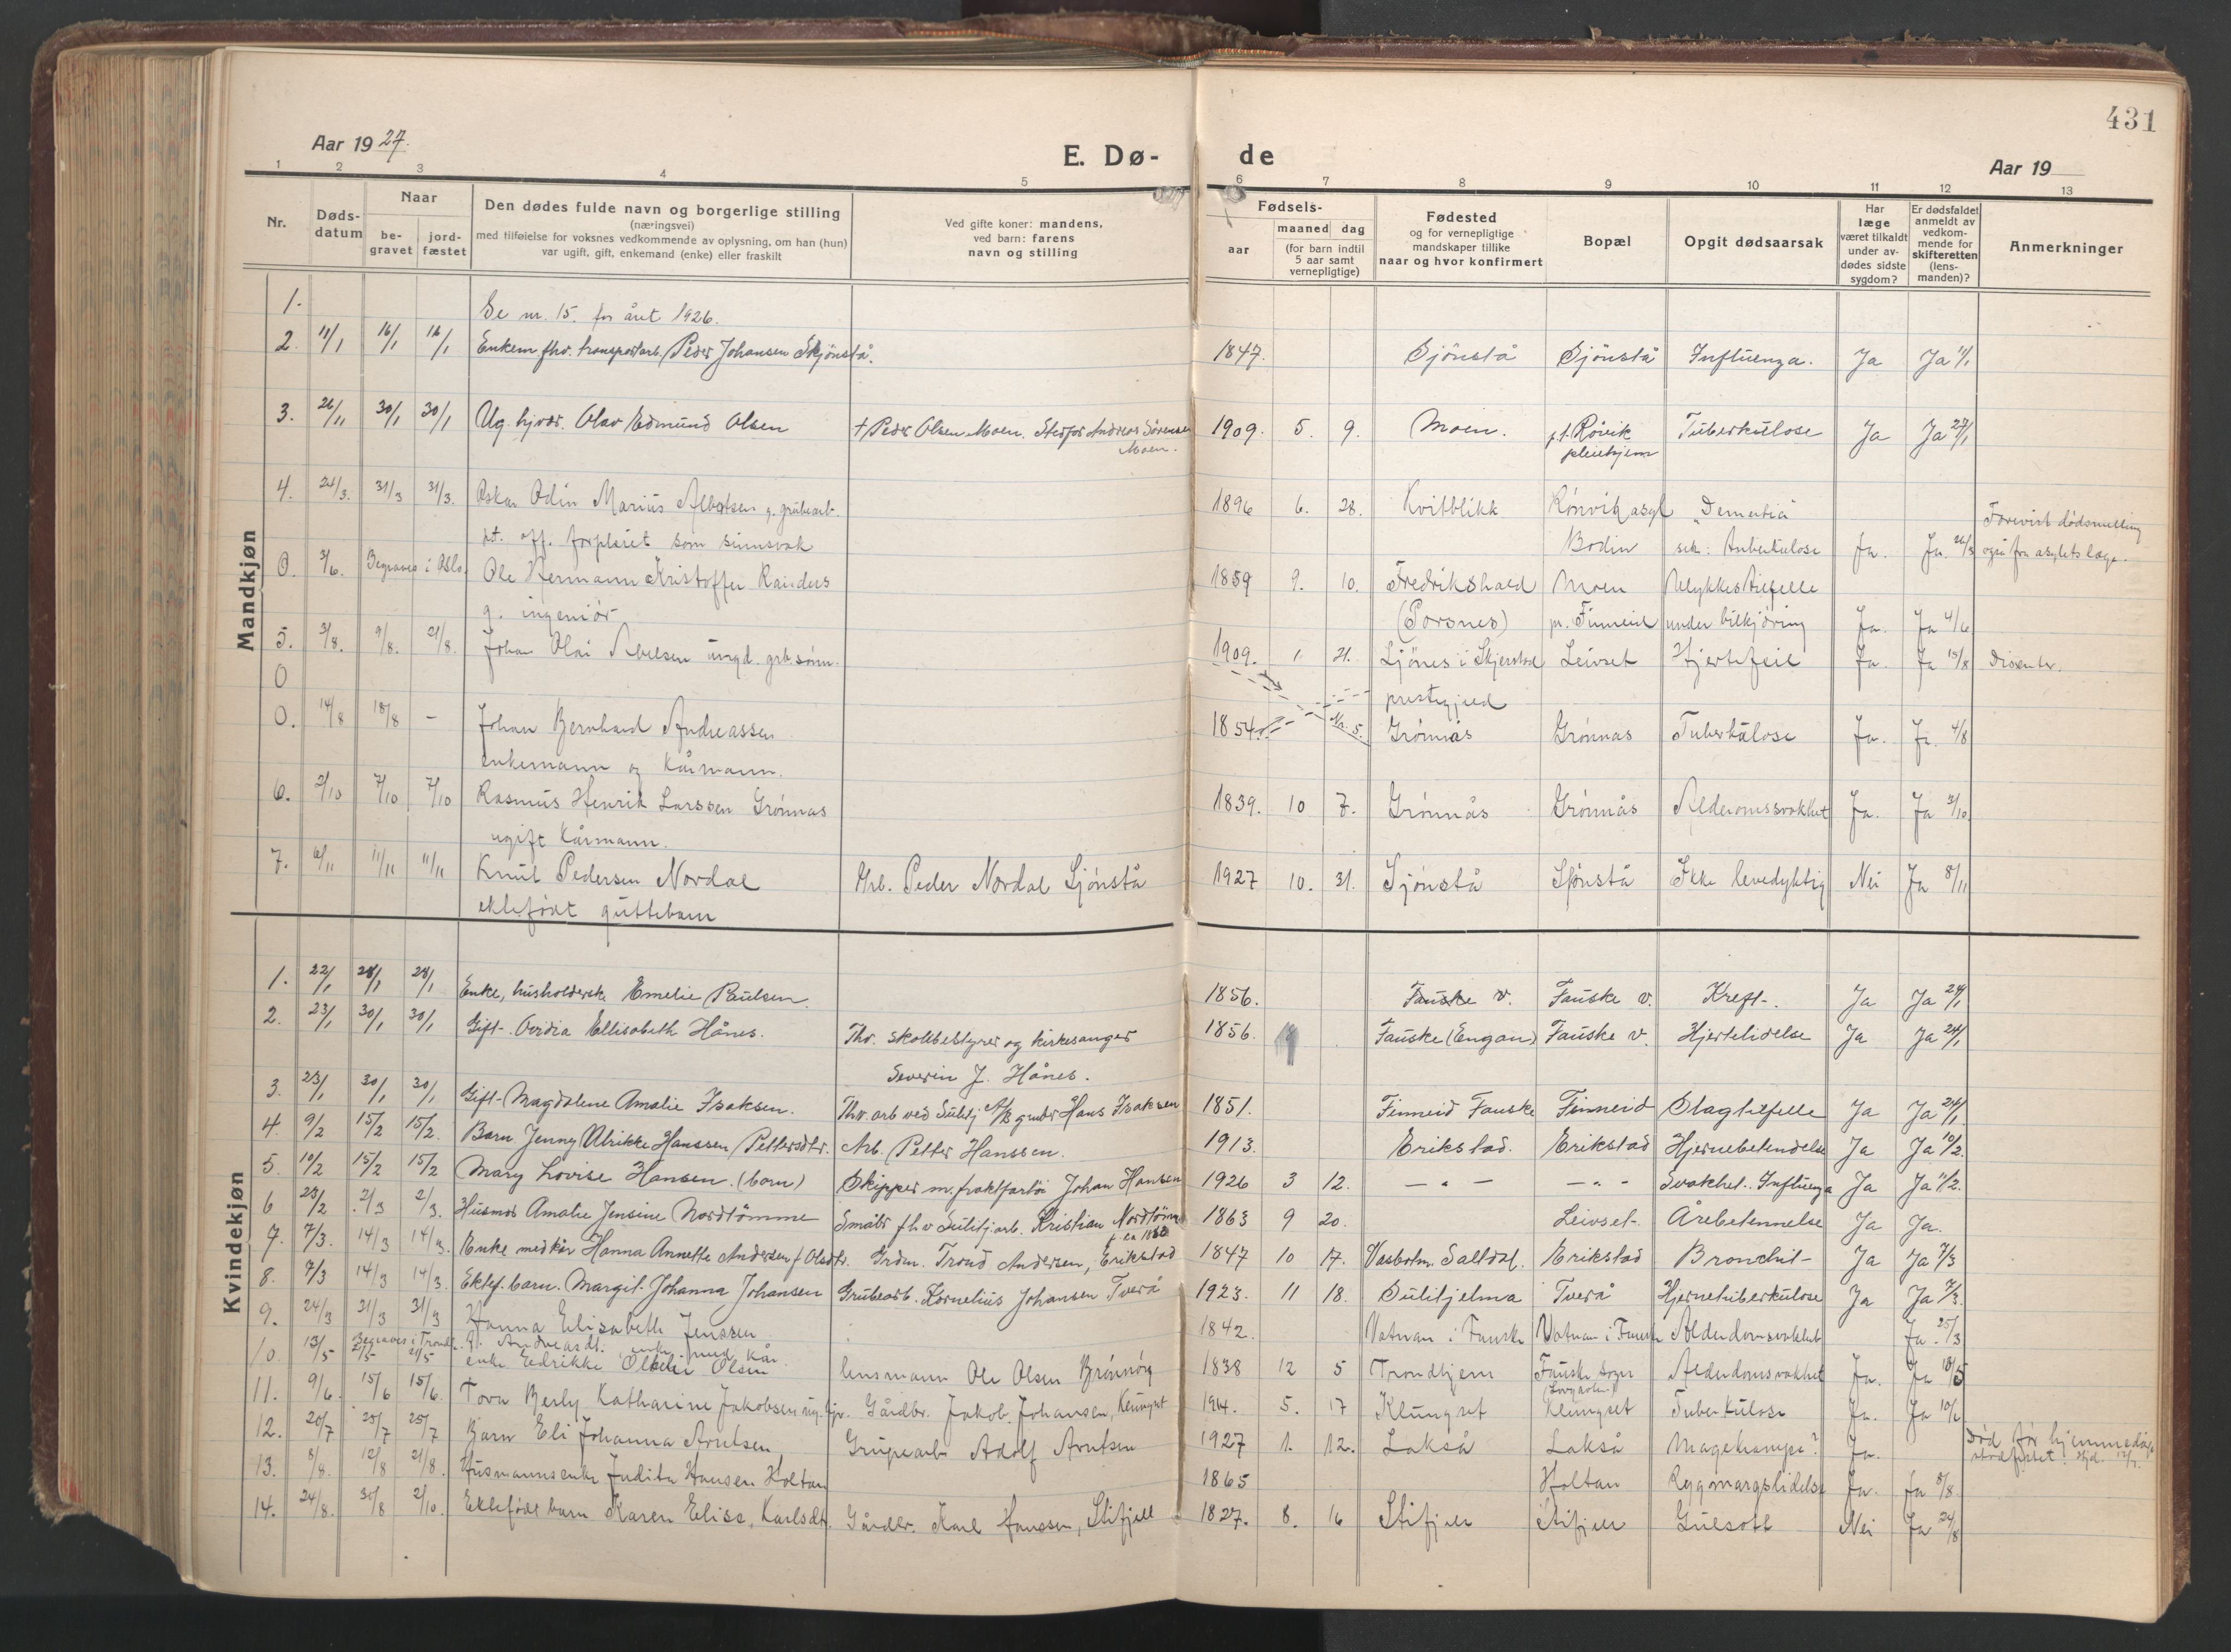 431
Aar 1927.
E. Dø-
de
Aar 19
1 2 3 4 5 6 7 8 9 10 11 12 13
Nr.
Døds-
datum
Naar
be-
gravet
jord-
fæstet
Den dødes fulde navn og borgerlige stilling
(næringsvei)
med tilføielse for voksnes vedkommende av oplysning, om han (hun)
var ugift, gift, enkemand (enke) eller fraskilt
Ved gifte koner: mandens,
ved barn: farens
navn og stilling
Fødsels-
aar
maaned dag
(for barn indtil
5 aar samt
vernepligtige)
Fødested
og for vernepligtige
mandskaper tillike
naar og hvor konfirmert
Bopæl
Opgit dødsaarsak
Har
læge
været tilkaldt
under av-
dødes sidste
sygdom?
Er dødsfaldet
anmeldt av
vedkom-
mende for
skifteretten
(lens-
manden)?
Anmerkninger
Mandkjøn
1.
Se nr. 15. for året 1926.
2. 11/1 16/1 16/1 Enkem fhv. transportarb. Peder Johansen Skjönstå. 1847. Sjönstå Sjönstå Influenza. Ja Ja 11/1
3. 26/11 30/1 30/1 Ug. hjvær. Olav Edmund Olsen † Peder Olsen Moen. Stedfar Andreas Sörensen 1909. 5. 9. Moen. p.t. Rövik Tuberkulose Ja Ja 27/1
Moen.
pleiehjem
4. 24/3. 31/3 31/3. Oskar Odin Marius Albertsen g. grubearb. 1896 6. 28. Kvitblikk Rönvik asyl "Dementia" Forevist dödsmelding
pt. off. forpleiet som sinnsvak Bodin sek: Tuberkulose Ja. Ja. 26/3 også fra asylets læge.
0. 3/6. Begraves i Oslo. Ole Hermann Kristoffer Randers 1859 9. 10. Fredrikshald Moen Ulykkestilfelle
g. ingeniör (Torsnes) pr. Finneid under bilkjöring Ja. Ja 4/6
5. 3/8. 9/8. 21/8. Johan Olai Abelsen ungd. grb.sönn. 1909. 1. 21. Ljönes i Skjerstad Leivset Hjertefeil Ja. Ja 15/8 Dissenter.
0
prestegjeld
0. 14/8 18/8 - Johan Bernhard Andreassen 1854. Nr. 5. Grönnås Grönnas Tuberkulose Ja. Ja. 4/8
enkemann og kårmann.
6. 2/10 7/10 7/10 Rasmus Henrik Larssen Grönnas 1839. 10 7. Grönnås Grönnås Alderdomssvakhet Ja. Ja 3/10
ugift kårmann.
7. 6/11 11/11 11/11 Knut Pedersen Nordal Arb. Peder Nordal Sjönstå 1927 10. 31. Sjönstå Sjönstå Ikke levedyktig Nei Ja 8/11
ektefödt guttebarn
Kvindekjøn
1. 22/1 28/1 28/1 Enke, husholderske Emelie Paulsen. 1856. Fauske v. Fauske v. Kreft. Ja Ja 24/1
2. 23/1 30/1 30/1 Gift. Ovidia Ellisabeth Hånes. Fhv. skolebestyrer og kirkesanger 1856. Fauske (Engan) Fauske v. Hjertelidelse Ja Ja 24/1
Severin J. Hånes.
3. 23/1 30/1 30/1 Gift. Magdalene Amalie Isaksen. Fhv. arb ved Sulitj A/B gruber Hans Isaksen 1851. Finneid Fauske Finneid Slagtilfelle Ja Ja 24/1.
4. 9/2 15/2 15/2. Barn Jenny Ulrikke Hanssen Pettersdtr. Arb. Petter Hanssen. 1913. Erikstad. Erikstad Hjernebetendelse Ja Ja 10/2.
5. 10/2 15/2 15/2 Mary Lovise Hansen. (barn) Skipper m. fraktfartöi Johan Hansen 1926 3 12. — " — — " — Svakhet. Influenza Ja Ja 11/2.
6 25/2 2/3 2/3. Husmor Amalie Jensine Nordtömme Småbr fhv Sulitj.arb. Kristian Nordtömme 1863 9 20. Leivset. Årebetennelse Ja Ja.
7. 7/3. 14/3 14/3. Enke med kår Hanna Annette Andersen f Olsdtr. Grdm. Trond Andersen, Erikstad 1847 10 17. Vasbotn. Saltdal. Erikstad Bronchit Ja Ja 7/3
8. 7/3 14/3 14/3. Ektef. barn. Margit Johanna Johansen Grubearb. Kornelius Johansen Tverå 1923. 11 18. Sulitjelma Tverå Hjernetuberkulose Ja Ja 7/3.
9. 24/3 31/3 31/3 Hanna Elisabeth Jenssen 1842. Vatnan i Fauske Vatnan i Fauske Alderdomssvakhet Ja. 25/3
f. Andreasdt. enke med kår.
10. 13/5 Begraves i Trondh. 21/5 21/5 enke Fredrikke Olsen lensmann Ole Olsen Brönnöy 1838 12 5 Trondhjem Fauske sogn Alderdomssvakhet Ja. Ja 18/5
11. 9/6. 15/6 15/6. Tora Berly Katharine Jakobsen ug. hjv. Gårdbr. Jakob Johansen, Klungset 1914. 5. 17 Klungset Klungset Tuberkulose Ja. Ja 10/6
12. 20/7 25/7 25/7 Barn Eli Johanna Arntsen Grubearb Adolf Arntsen 1927 1. 12. Lakså Lakså Magekrampe? Ja. Död för hjemmedåp
13. 8/8. 12/8 21/8. Husmannsenke Judita Hansen Holtan 1865 Holtan Ryggmargslidelse Ja. Ja 8/8.
14. 24/8. 30/8 2/10. Ektefödt barn Karen Elise Karlsdt. Gårdbr. Karl Hanssen, Stifjell 1827. 8. 16 Stifjell Stifjell Gulsott Nei Ja 24/8